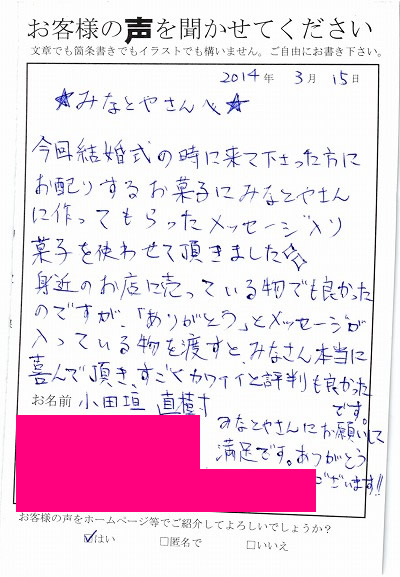 お客様の声を聞かせてください
文章でも箇条書きでもイラストでも構いません。ご自由にお書き下さい。
2014年 3月 15日
☆みなとやさんへ☆
今回結婚式の時に来て下さった方に
お配りするお菓子にみなとやさん
に作ってもらったメッセージ入り
菓子を使わせて頂きました
身近のお店に売っている物でも良かった
のですが、「ありがとう」とメッセージが
入っている物を渡すと、みなさん本当に
喜んで頂き、すごくカワイイと評判も良かった
です。
お名前 小田垣 直樹
みなとやさんにお願いして
満足です。ありがとう
ございます!!
お客様の声をホームページ等でご紹介してよろしいでしょうか?
☑はい □匿名で □いいえ